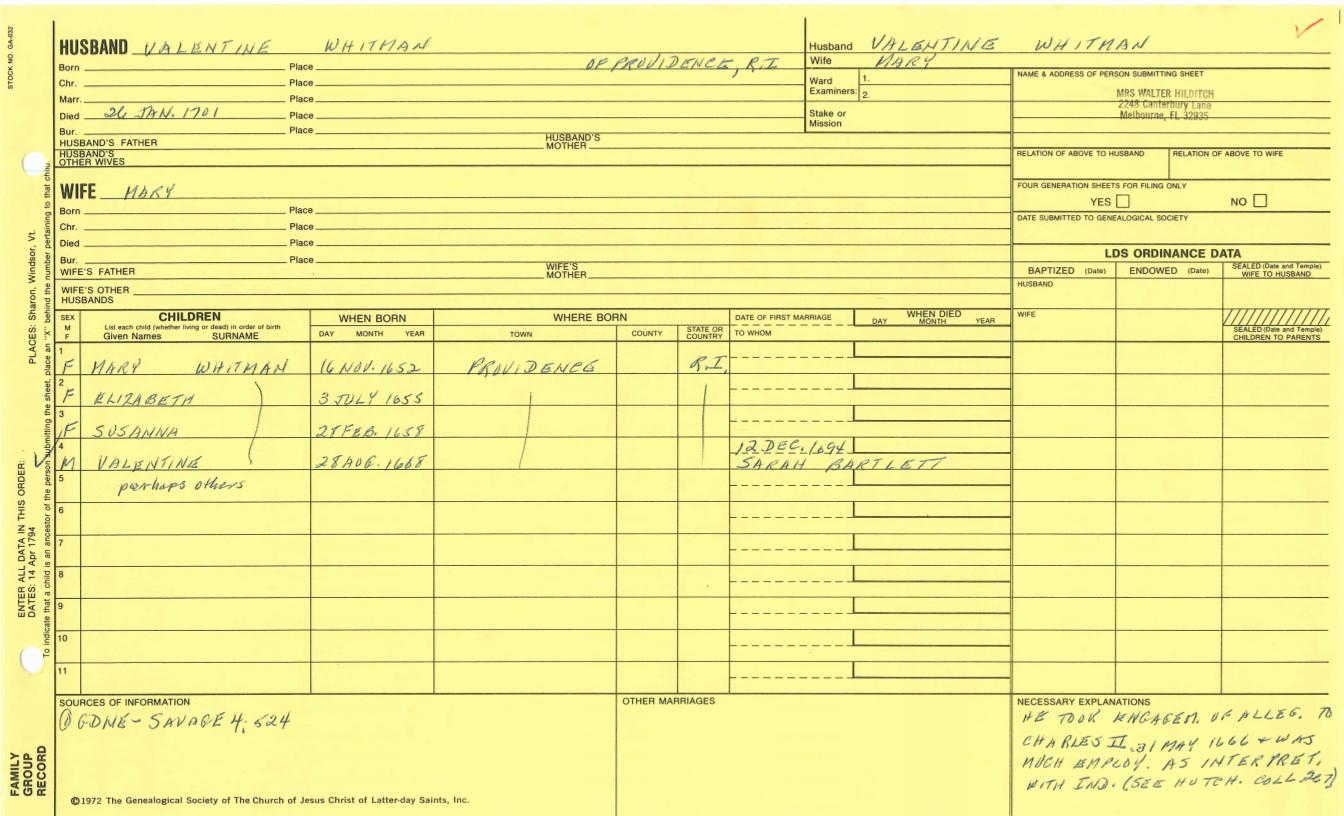 STOCK NO. GA-032
HUSBAND VALENTINE WHITMAN
Born Place OF PROVIDENCE, R.I
Chr. Place
Marr. Place
Died 26 JAN. 1701 Place
Bur. Place
HUSBAND'S FATHER HUSBAND'S MOTHER
HUSBAND'S OTHER WIVES
Husband VALENTINE WHITMAN
Wife MARY
Ward Examiners: 1.
2.
Stake or Mission
NAME & ADDRESS OF PERSON SUBMITTING SHEET
MRS WALTER HILDITCH
2248 Canterbury Lane
Melbourne, FL 32935
RELATION OF ABOVE TO HUSBAND RELATION OF ABOVE TO WIFE
FOUR GENERATION SHEETS FOR FILING ONLY
YES NO
DATE SUBMITTED TO GENEALOGICAL SOCIETY
WIFE MARY
Born Place
Chr. Place
Died Place
Bur. Place
WIFE'S FATHER WIFE'S MOTHER
WIFE'S OTHER HUSBANDS
LDS ORDINANCE DATA
BAPTIZED (Date) ENDOWED (Date) SEALED (Date and Temple) WIFE TO HUSBAND
HUSBAND
WIFE
SEALED (Date and Temple) CHILDREN TO PARENTS
SEX M F
CHILDREN
List each child (whether living or dead) in order of birth
Given Names SURNAME
WHEN BORN
DAY MONTH YEAR
WHERE BORN
TOWN COUNTY STATE OR COUNTRY
DATE OF FIRST MARRIAGE
TO WHOM
WHEN DIED
DAY MONTH YEAR
1 F MARY WHITMAN 16 NOV. 1652 PROVIDENCE R.I.
2 F ELIZABETH 3 JULY 1655
3 F SUSANNA 28 FEB. 1658
4 M VALENTINE 28 AUG. 1668 12 DEC. 1694
SARAH BARTLETT
5 perhaps others
6
7
8
9
10
11
SOURCES OF INFORMATION
① GDNE - SAVAGE 4; 524
OTHER MARRIAGES
NECESSARY EXPLANATIONS
HE TOOK ENGAGEM. OF ALLEG. TO
CHARLES II, 31 MAY 1666 + WAS
MUCH EMPLOY. AS INTERPRET.
WITH IND. (SEE HUTCH. COLL 267)
©1972 The Genealogical Society of The Church of Jesus Christ of Latter-day Saints, Inc.
FAMILY
GROUP
RECORD
ENTER ALL DATA IN THIS ORDER:
DATES: 14 Apr 1794
PLACES: Sharon, Windsor, Vt.
To indicate that a child is an ancestor of the person submitting the sheet, place an "X" behind the number pertaining to that child.